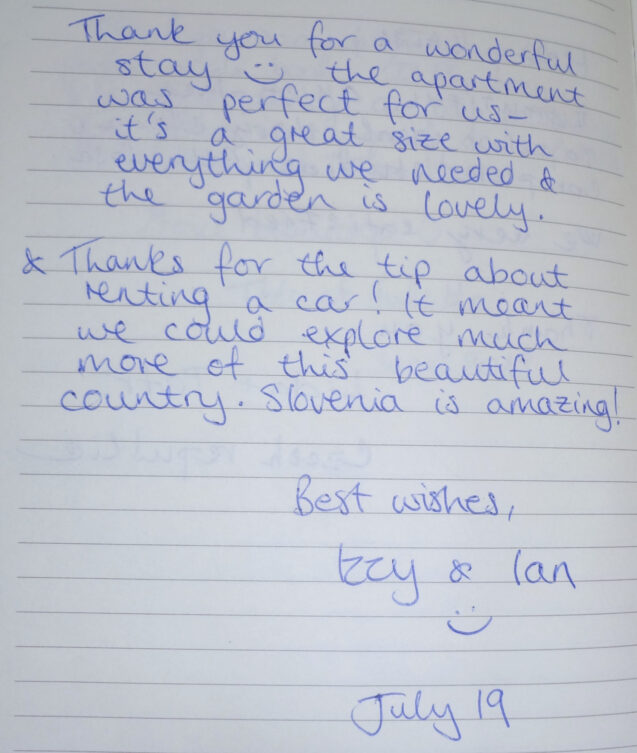 Thank you for a wonderful
stay :) the apartment
was perfect for us-
it's a great size with
everything we needed &
the garden is lovely.
& Thanks for the tip about
renting a car! It meant
we could explore much
more of this beautiful
country. Slovenia is amazing!
Best wishes,
Izzy & Ian
:)
July 19